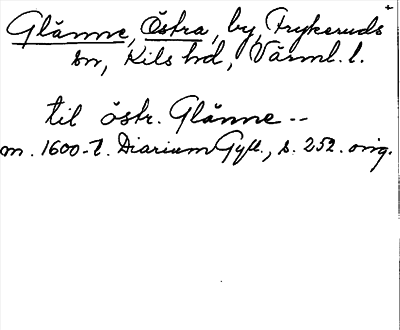 Glänne, Östra, by, Frykeruds
sn, Kils hd, Värml. l.
til östr. Glänne --
m. 1600-t. Diarium Gyll., s. 252. orig.